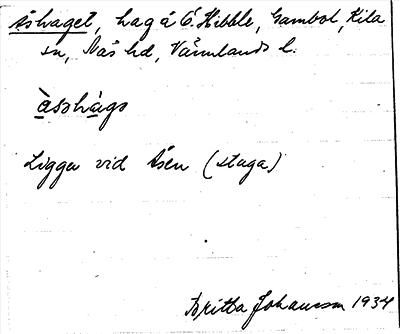 Åshaget, haga Ö. Hibble, Gambol, Kila
sn, Näs hd, Värmlands l.
àsshàgs
Ligger vid Åsen (stuga)
Britta Johansson 1934